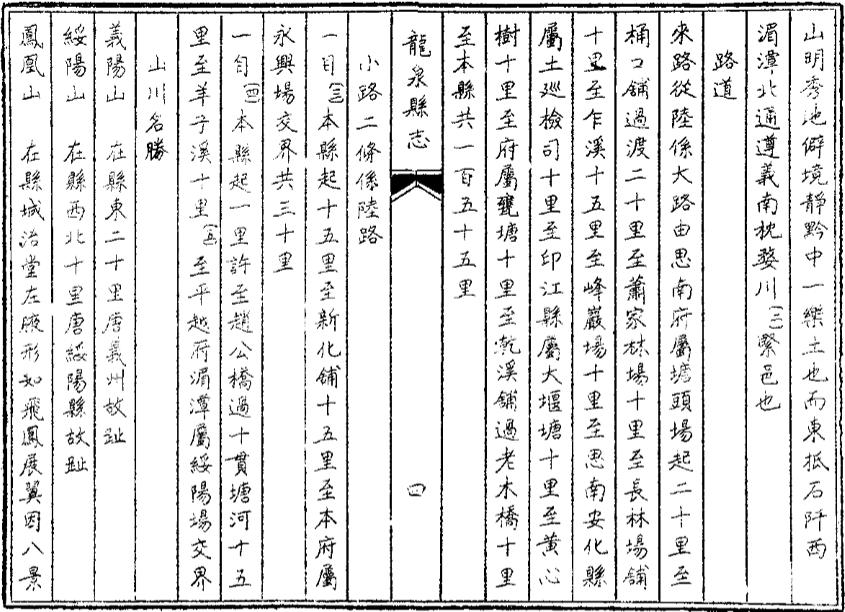 山明秀地僻境靜黔中一樂土也而東抵石阡西
湄潭北通遵義南枕婺川〔二〕緊邑也
路道
來路從陸係大路由思南府屬塘頭場起二十里至
桶口舖過渡二十里至蕭家林場十里至長林場舖
十里至乍溪十五里至峰巖場十里至思南安化縣
屬土巡檢司十里至印江縣屬大堰塘十里至黃心
樹十里至府屬甕塘十里至乾溪舖過老木橋十里
至本縣共一百五十五里
小路二條係陸路
龍泉縣志
四
一自〔三〕本縣起十五里至新化舖十五里至本府屬
永興場交界共三十里
一自〔四〕本縣起一里許至趙公橋過十貫塘河十五
里至羊子溪十里〔五〕至平越府湄潭屬綏陽場交界
山川名勝
義陽山 在縣東二十里唐義州故趾
綏陽山 在縣西北十里唐綏陽縣故趾
鳳凰山 在縣城治堂左腋形如飛鳳展翼因八景